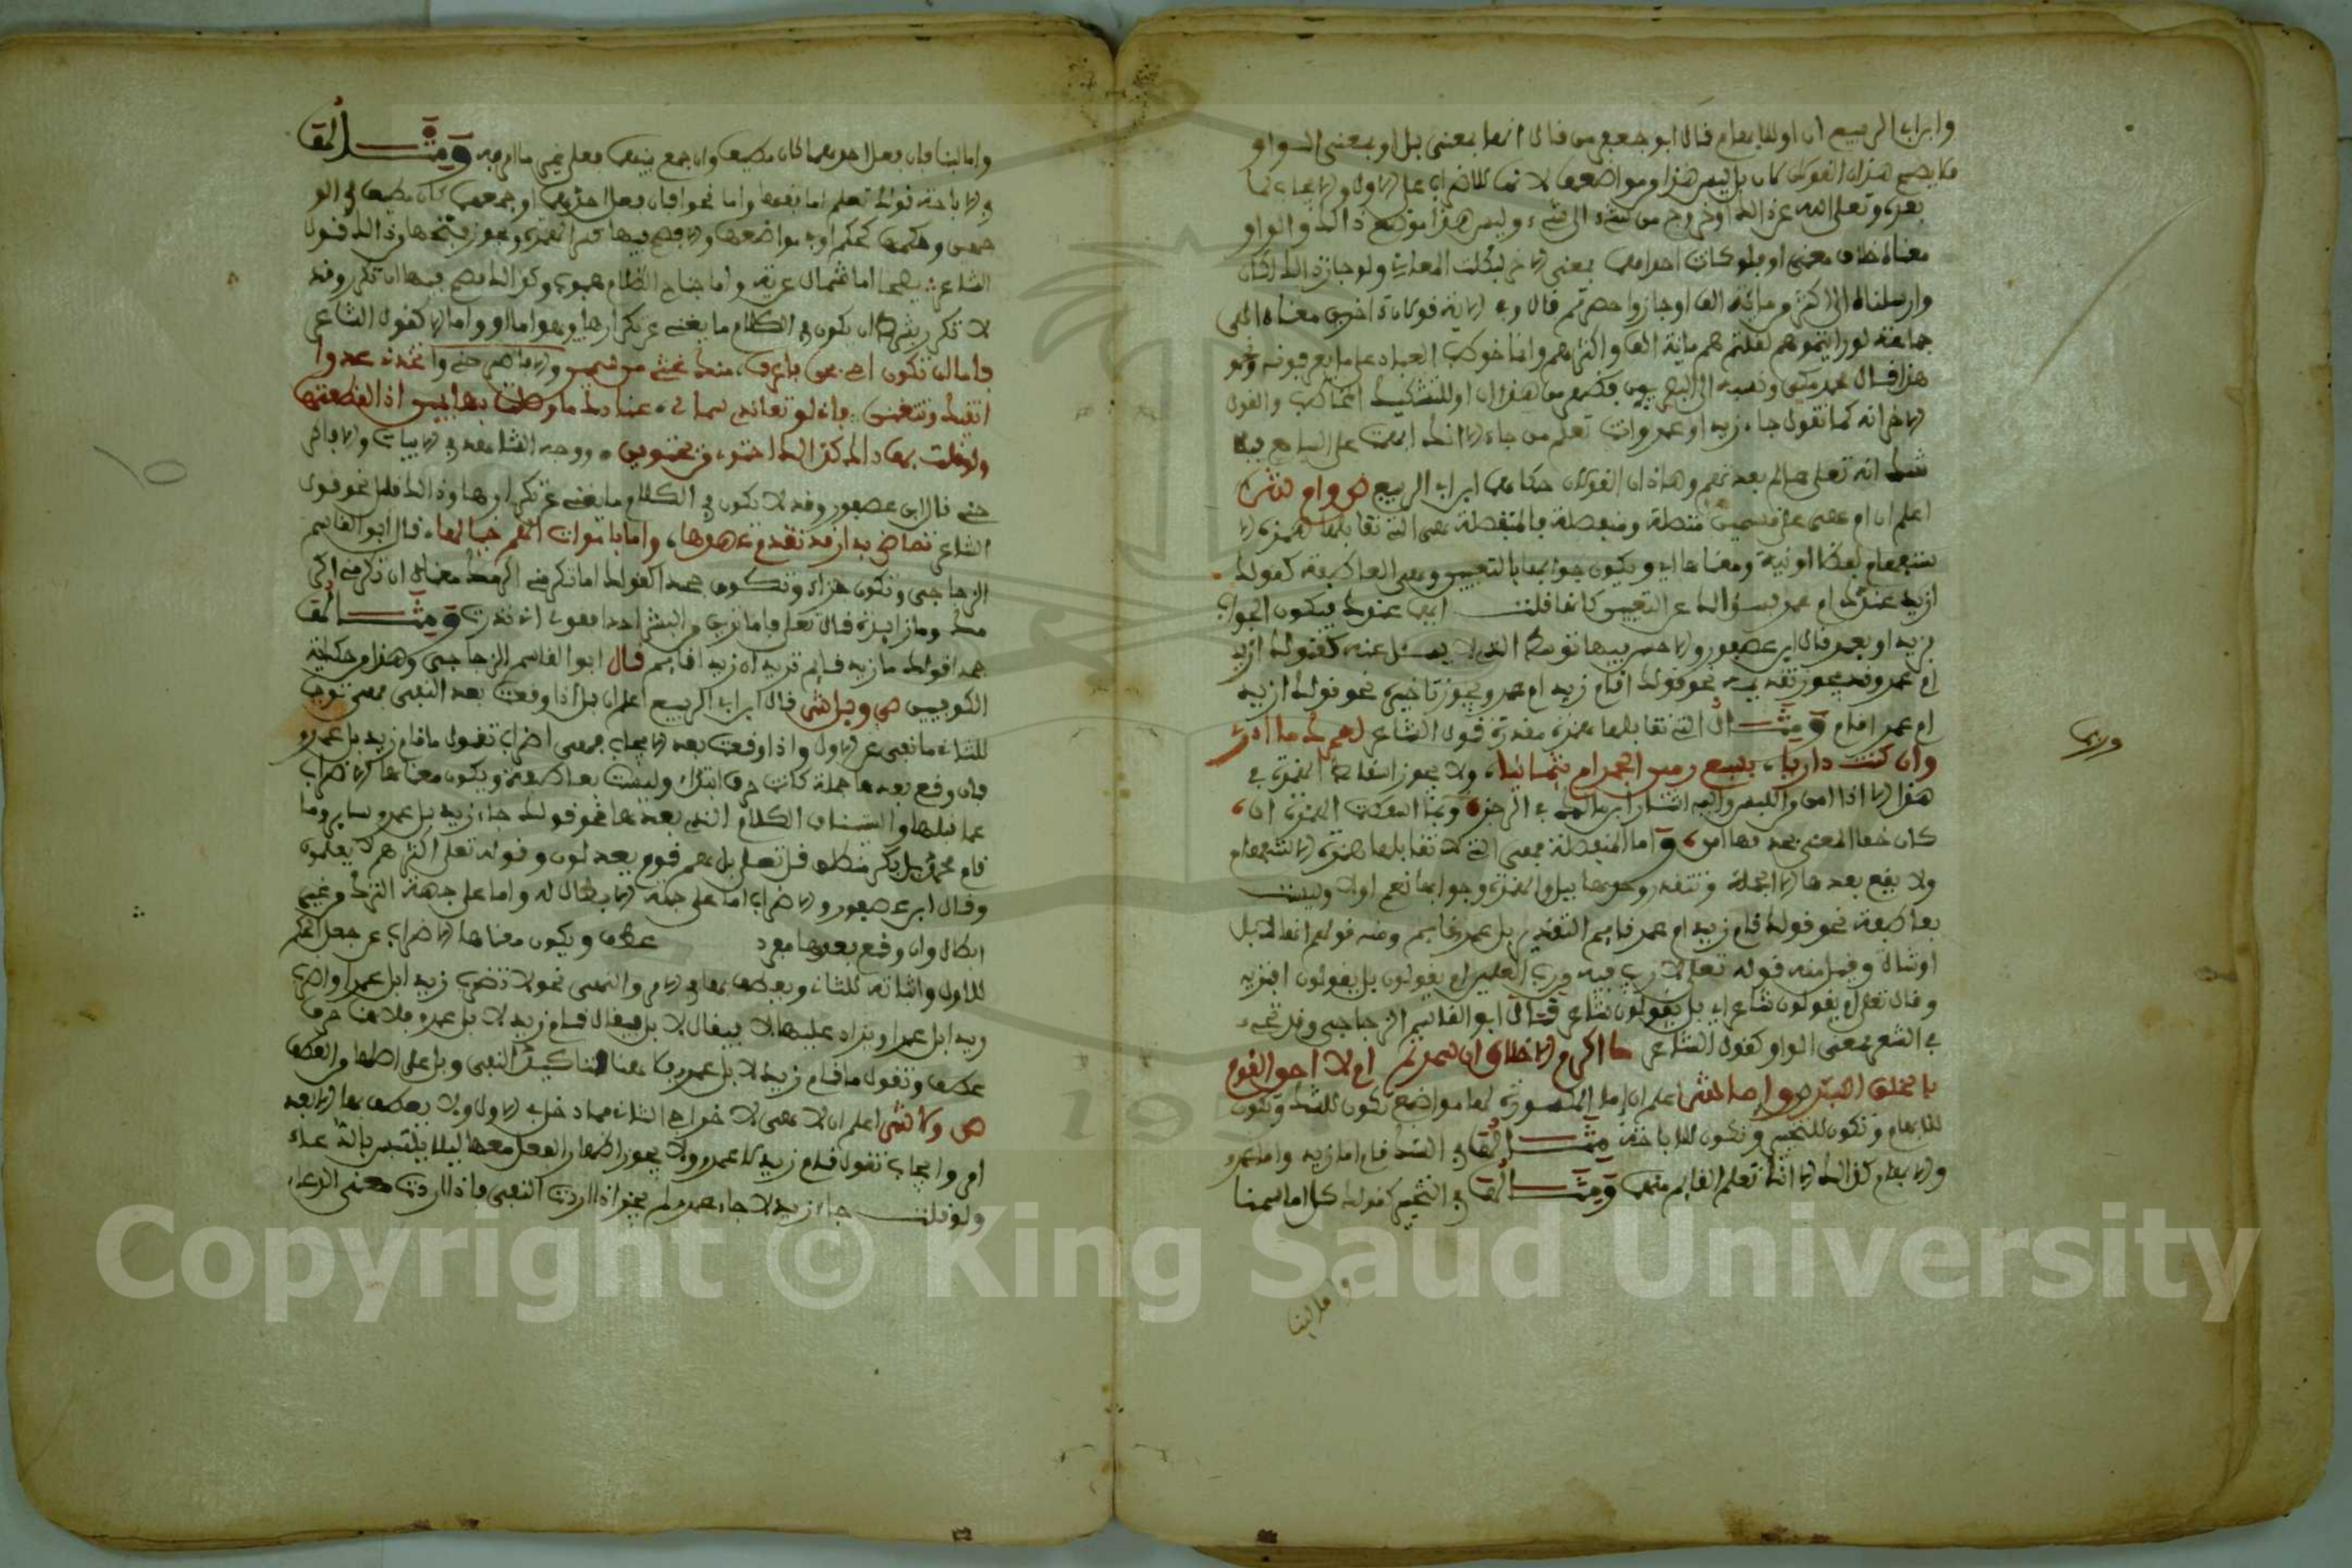 وابن ابي الربيع ان او للابهام قال ابو جعفر من قال انها بمعنى بل او بمعنى الواو
فلا يصح هذان القولان لان بل ليس هذا من مواضعها لانها للاضراب عن الاول والايجاب لما
بعده وتعلى الله عن ذلك او خروج من شيء الى شيء وليس هذا موضع ذلك والواو
معناه خلاف معنى او فلو كانت احداهما بمعنى الاخرى لبطلت المعاني ولو جاز ذلك لكان
وارسلناه الى اكثر من مائة الف اوجز واحصر ثم قال وفي الاية قولان اخران معناه الى
جماعة لو رايتموهم لقلتم هم مائة الف او اكثر وانما خوطب العباد على ما يعرفونه ونحو
هذا قال محمد مكي ونسبه الى البصريين فكلهم من هذا ان او للتشكيك المخاطب والقول
الاخر انه كما تقول جاء زيد او عمرو وانت تعلم من جاء الا انك ابهمت على السامع فيها
شك انه تعلى عالم بعددهم وهذان القولان حكاهما ابن ابي الربيع ص وام ش
اعلم ان ام على قسمين متصلة ومنفصلة فالمتصلة هي التي تقابلها همزة الا
ستفهام لفظا او نية ومعناها اي ويكون جوابها بالتعيين وهي العاطفة كقولك
ازيد عندك ام عمرو بسؤالك عن التعيين كانك قلت ايهما عندك فيكون الجواب
بزيد او بعمرو قال ابن عصفور والاحسن فيها توسط الذي لا يسئل عنه كقولك ازيد
ام عمرو وقد يجوز تقديمه نحو قولك اقام زيد ام عمرو ويجوز تاخيره نحو قولك ازيد
ام عمرو اقام ومثال التي تقابلها همزة مقدرة قول الشاعر لعمرك ما ادري
وان كنت داريا، بسبع رمين الجمر ام بثمانيا، ولا يجوز اسقاط الهمزة في
هذا الا اذا امن اللبس واليه اشار ابن مالك في الرجز وربما اسقطت الهمزة ان،
كان خفا المعنى بحذفها امن، واما المنفصلة فهي التي لا تقابلها همزة الاستفهام
ولا يقع بعدها الا الجملة وتتقدر وحدها ببل والهمزة وجوابها نعم او لا وليست
بعاطفة نحو قولك قام زيد ام عمرو قايم التقدير بل عمرو قايم ومنه قولهم انها لابل
ام شاء وقيل منه قوله تعلى لا ريب فيه من رب العلمين ام يقولون بل يقولون افتريه
وقال تعلى ام يقولون شاعر اي بل يقولون شاعر قال ابو القاسم الزجاجي وقد تجيء
في الشعر بمعنى الواو كقول الشاعر
ص واما ش اعلم ان اما المكسورة لها مواضع تكون للشك وتكون
للابهام وتكون للتخيير وتكون للاباحة مثالها في الشك قام اما زيد واما عمرو
والابهام كذلك الا انك تعلم القايم منهما ومثالها في التخيير كقولك كل اما سمنا
واما لبنا
وربما
واما لبنا فان فعل احدهما كان مطيعا وان جمع بينهما فعل غير ما امر به ومثالها
في الاباحة قولك تعلم اما فقها واما نحوا فان فعل احدهما او جمعهما كان مطيعا في الو
جهين وحكمها كحكم او في مواضعها والافصح فيها كسر الهمزة ويجوز فتحها وذلك قول
الشاعر
لا تكرر بشرط ان يكون في الكلام ما يغني عن تكرارها وهو اما او واما الا كقول الشاعر
فاما ان تكون اخي بحق فاعرف منك غثي من سمين والا فاطرحني واتخذني عدوا
اتقيك وتتقيني، فاني لو تعاندني شمالي، عنادك ما وصلت بها يميني اذا لقطعتها
ولقلت بيني كذلك اجتوي من يجتويني ووجه الشاهد في الابيات والا فاطر
حني قال ابن عصفور وقد لا تكون في الكلام ما يغني عن تكرارها وذلك قليل نحو قول
الشاعر تهاض بدار قد تقادم عهدها، واما باموات الم خيالها، قال ابو القاسم
الزجاجي وتكون جزاء وتكون جحدا كقولك اما تكرمني اكرمك معناه ان تكرمني اكر
مك وما زايدة قال تعلى فاما ترين من البشر احدا فقولي اني نذرت ومثالها
جحدا قولك ما زيد قايم تريد ان زيد قايم قال ابو القاسم الزجاجي وهذا من حكاية
الكوفيين ص وبل ش قال ابن ابي الربيع اعلم ان بل اذا وقعت بعد النفي فهي توجب
للثاني ما نفي عن الاول واذا وقعت بعد الايجاب فهي اضراب تقول ما قام زيد بل عمرو
فان وقع بعدها جملة كانت حرف ابتداء وليست بعاطفة ويكون معناها الاضراب
عما قبلها واستيناف الكلام الذي بعدها نحو قولك جاء زيد بل عمرو ساير وما
قام محمد بل بكر منطلق قال تعلى بل هم قوم يعدلون وقوله تعلى اكثرهم لا يعلمون
وقال ابن عصفور والاضراب اما على جهة الابطال له واما على جهة الترك من غير
ابطال وان وقع بعدها مفرد عطف ويكون معناها الاضراب عن جعل الحكم
للاول واثباته للثاني ويعطف بها في الامر والنهي نحو لا تضرب زيدا بل عمرا واضرب
زيدا بل عمرا ويزاد عليها لا فيقال لا بل فيقال قام زيد لا بل عمرو فلا هنا حرف
عطف وتقول ما قام زيد لا بل عمرو فلا هنا لتاكيد النفي وبل على اصلها من العطف
ص ولا ش اعلم ان لا هي لاخراج الثاني مما دخل فيه الاول ولا يعطف بها الا بعد
امر وايجاب تقول قام زيد لا عمرو ولا يجوز اظهار الفعل معها ليلا يلتبس بالدعاء
ولو قلت جاء زيد لا جاء عمرو لم يجز اذا اردت النفي فاذا اردت معنى الدعاء
Copyright © King Saud University